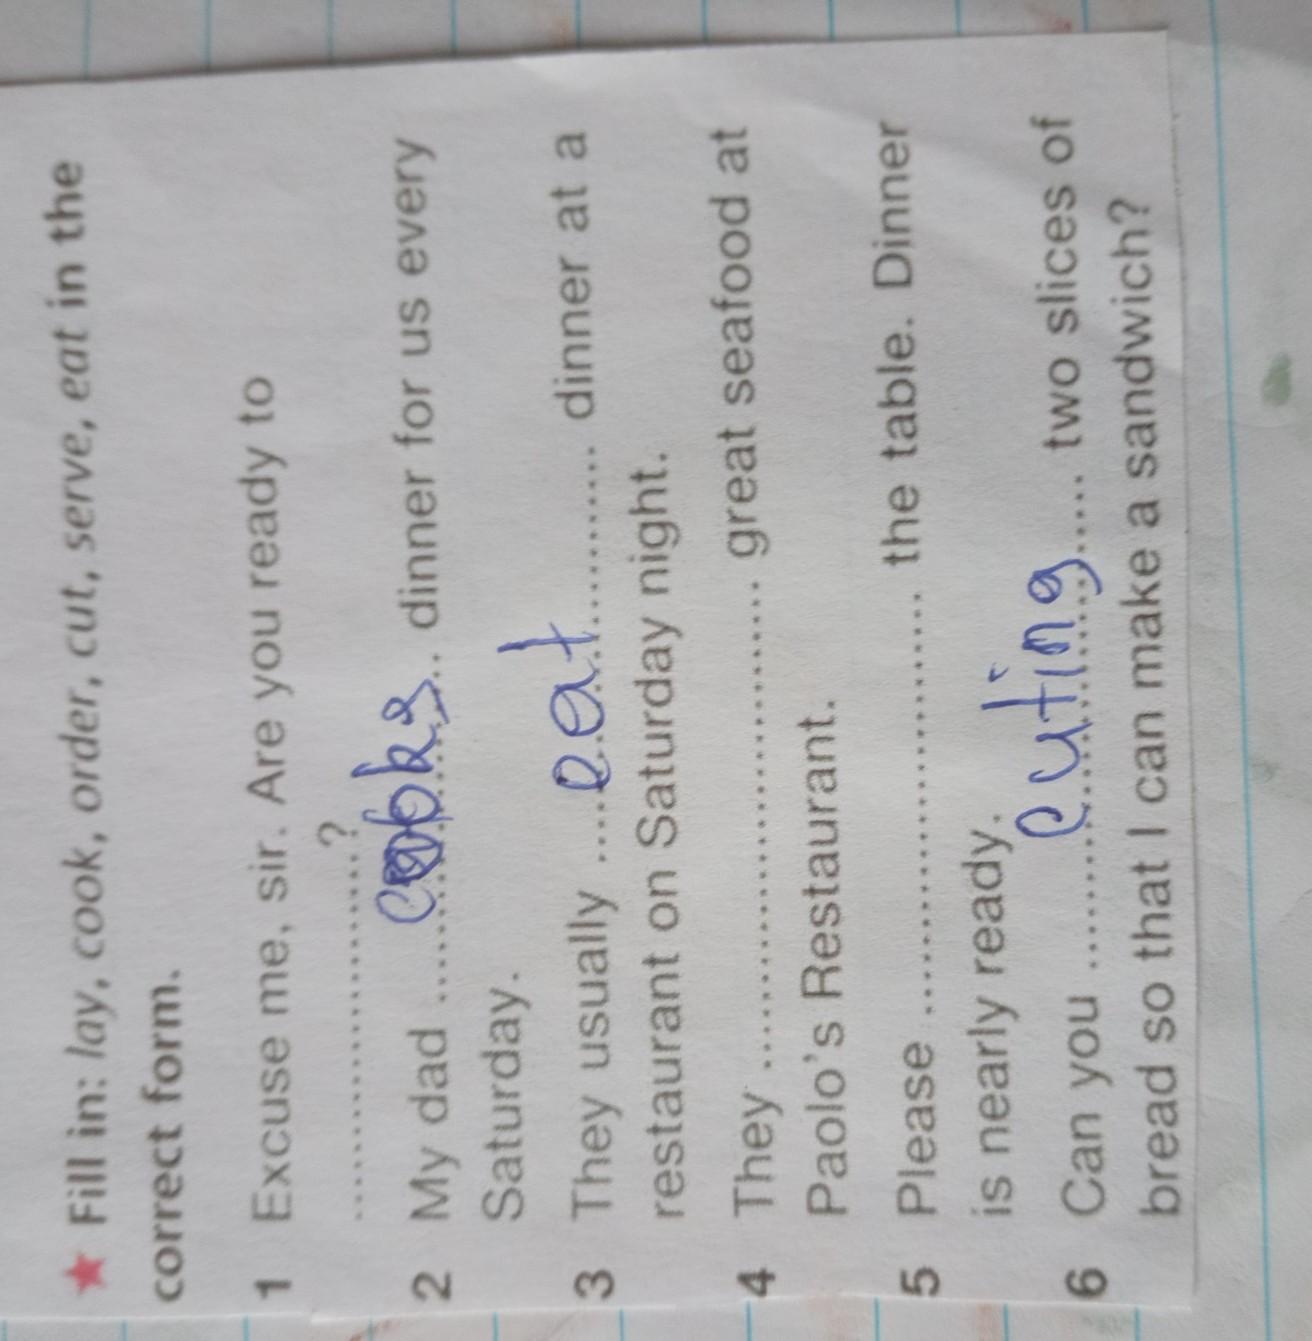 ★ Fill in: lay, cook, order, cut, serve, eat in the
correct form.
1 Excuse me, sir. Are you ready to
....................?
2 My dad ..... cooks .. dinner for us every
Saturday.
3 They usually .... eat .......... dinner at a
restaurant on Saturday night.
4 They .............................. great seafood at
Paolo's Restaurant.
5 Please .............................. the table. Dinner
is nearly ready.
6 Can you ........ cuting ..... two slices of
bread so that I can make a sandwich?